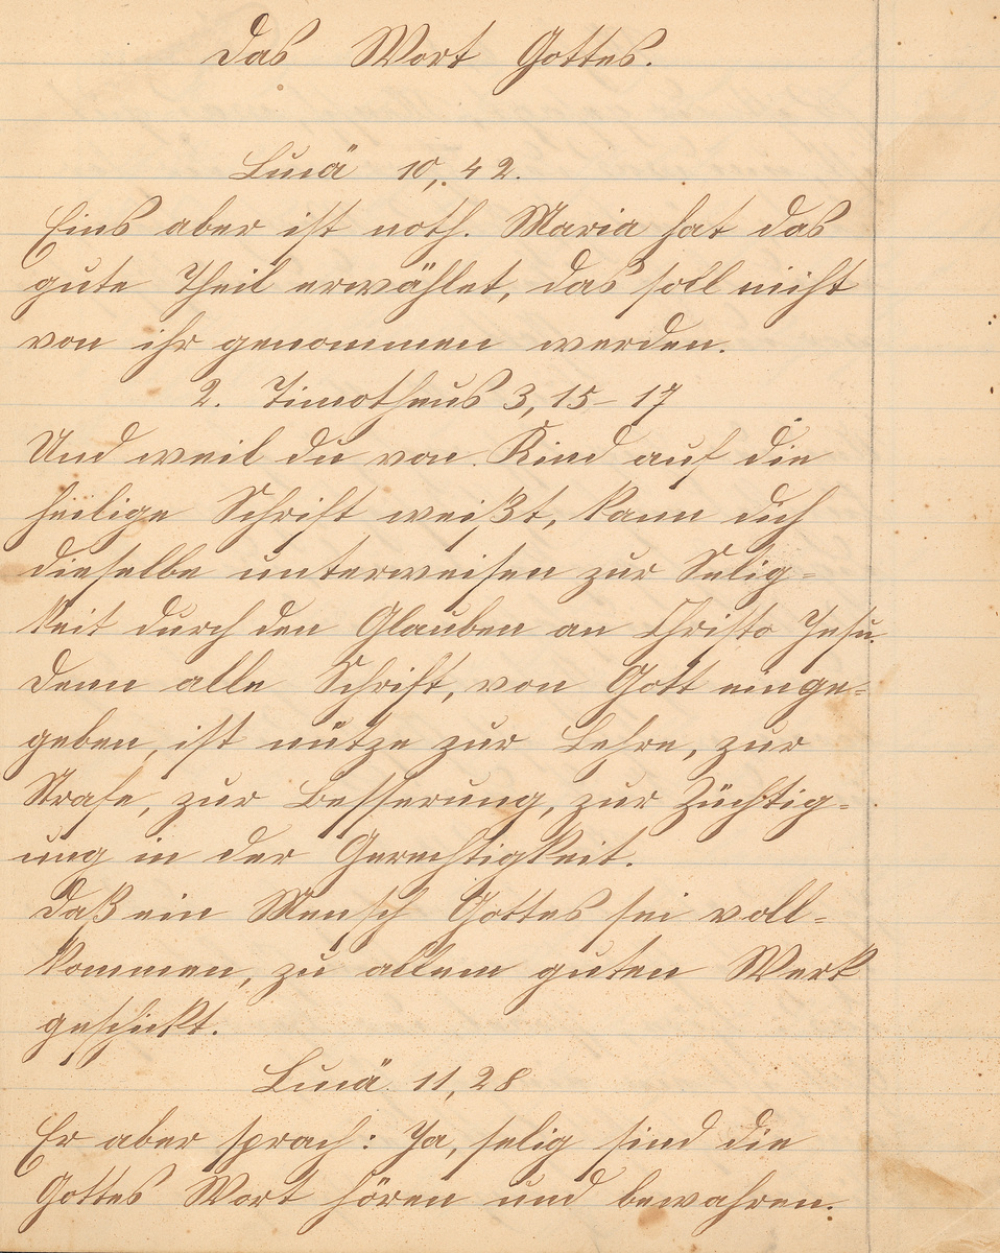 Das Wort Gottes.
Lucä 10, 42.
Eins aber ist noth. Maria hat das
gute Theil erwählet, das soll nicht
von ihr genommen werden.
2. Timotheus 3, 15-17
Und weil du von Kind auf die
heilige Schrift weißt, kann dich
dieselbe unterweisen zur Selig-
keit durch den Glauben an Christo Jesu.
Denn alle Schrift, von Gott einge-
geben, ist nütze zur Lehre, zur
Strafe, zur Besserung, zur Züchtig-
ung in der Gerechtigkeit.
Daß ein Mensch Gottes sei voll-
kommen, zu allem guten Werk
geschickt.
Lucä 11, 28
Er aber sprach: Ja, selig sind die
Gottes Wort hören und bewahren.